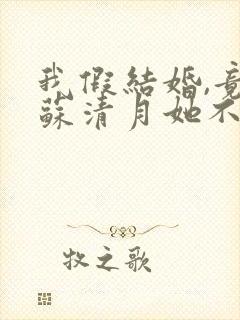 我假結婚,竟
蘇清月她不
牧之歌